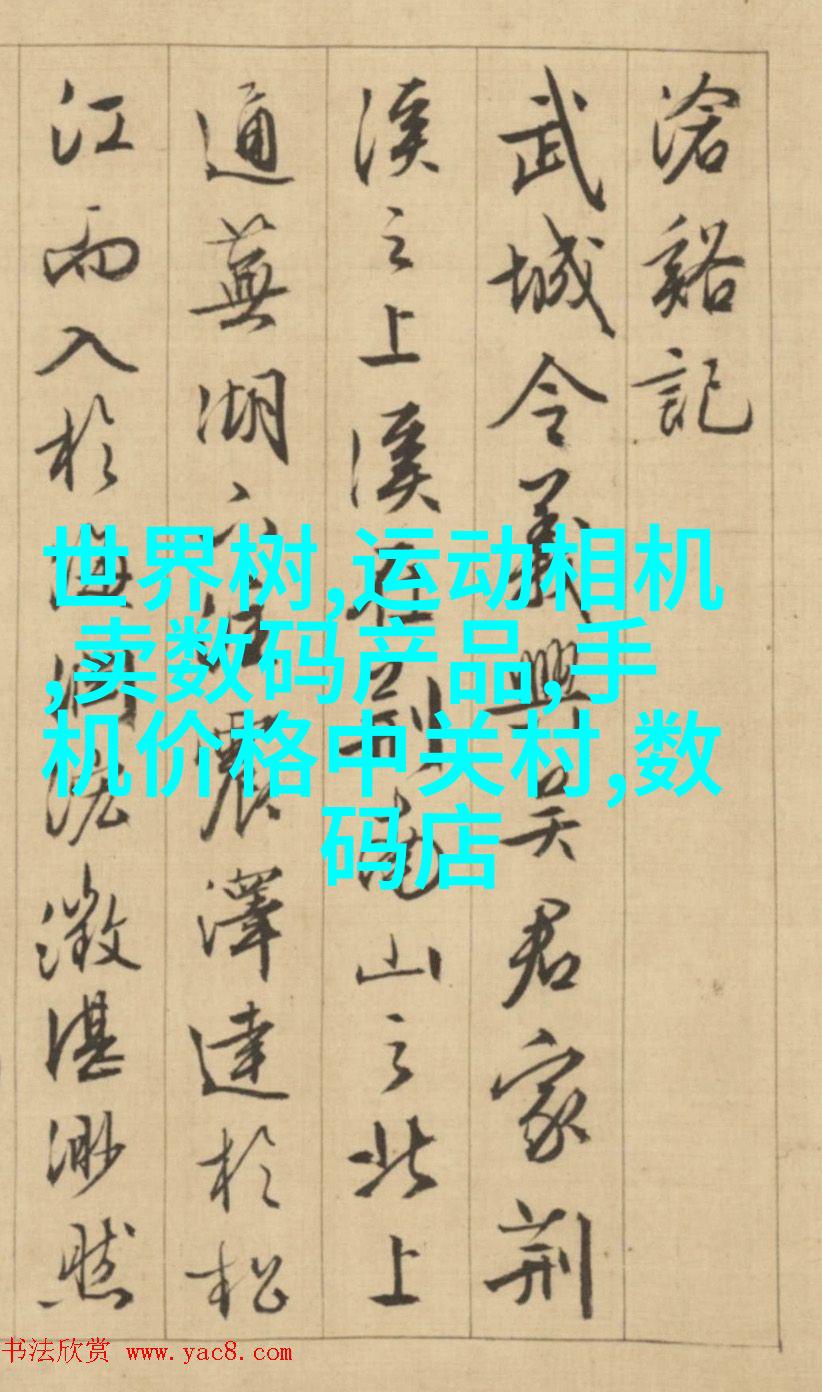 滄谿記
武城令義興吴君家荆
溪之上溪在荆南山之北上
通蕪湖震澤達於松
江而入於海淵泓澂湛渺然
世界树,运动相机
,卖数码产品,手
机价格中关村,数
码店
书法欣赏 www.yac8.com